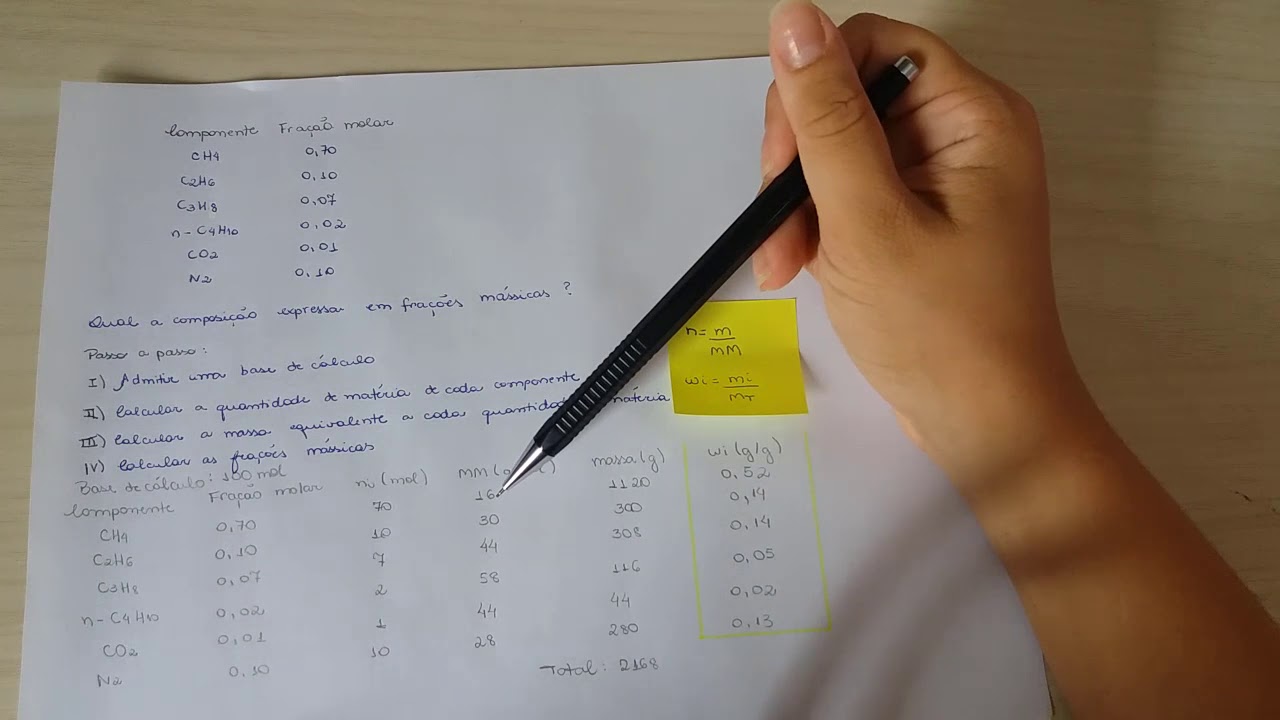 Componente Fração molar
CH4 0,70
C2H6 0,10
C3H8 0,07
n-C4H10 0,02
CO2 0,01
N2 0,10
Qual a composição expressa em frações mássicas?
Passo a passo:
I) Admitir uma base de cálculo
II) Calcular a quantidade de matéria de cada componente
III) Calcular a massa equivalente a cada matéria
IV) Calcular as frações mássicas
n = m/MM
wi = mi/mT
Base de cálculo: 100 mol
Componente Fração molar ni (mol) MM massa (g) wi (g/g)
CH4 0,70 70 16 1120 0,52
C2H6 0,10 10 30 300 0,14
C3H8 0,07 7 44 308 0,14
n-C4H10 0,02 2 58 116 0,05
CO2 0,01 1 44 44 0,02
N2 0,10 10 28 280 0,13
Total: 2168